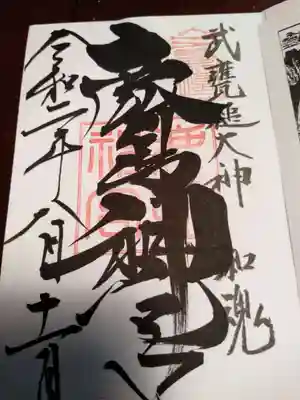 武甕槌大神 和魂
鹿島神宮
令和二年八月十一日